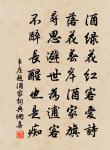 酒绿花红客爱诗
落花春岸酒家旗
寻思避世为逋客
不醉长醒也是痴
韦庄题酒家词典网集